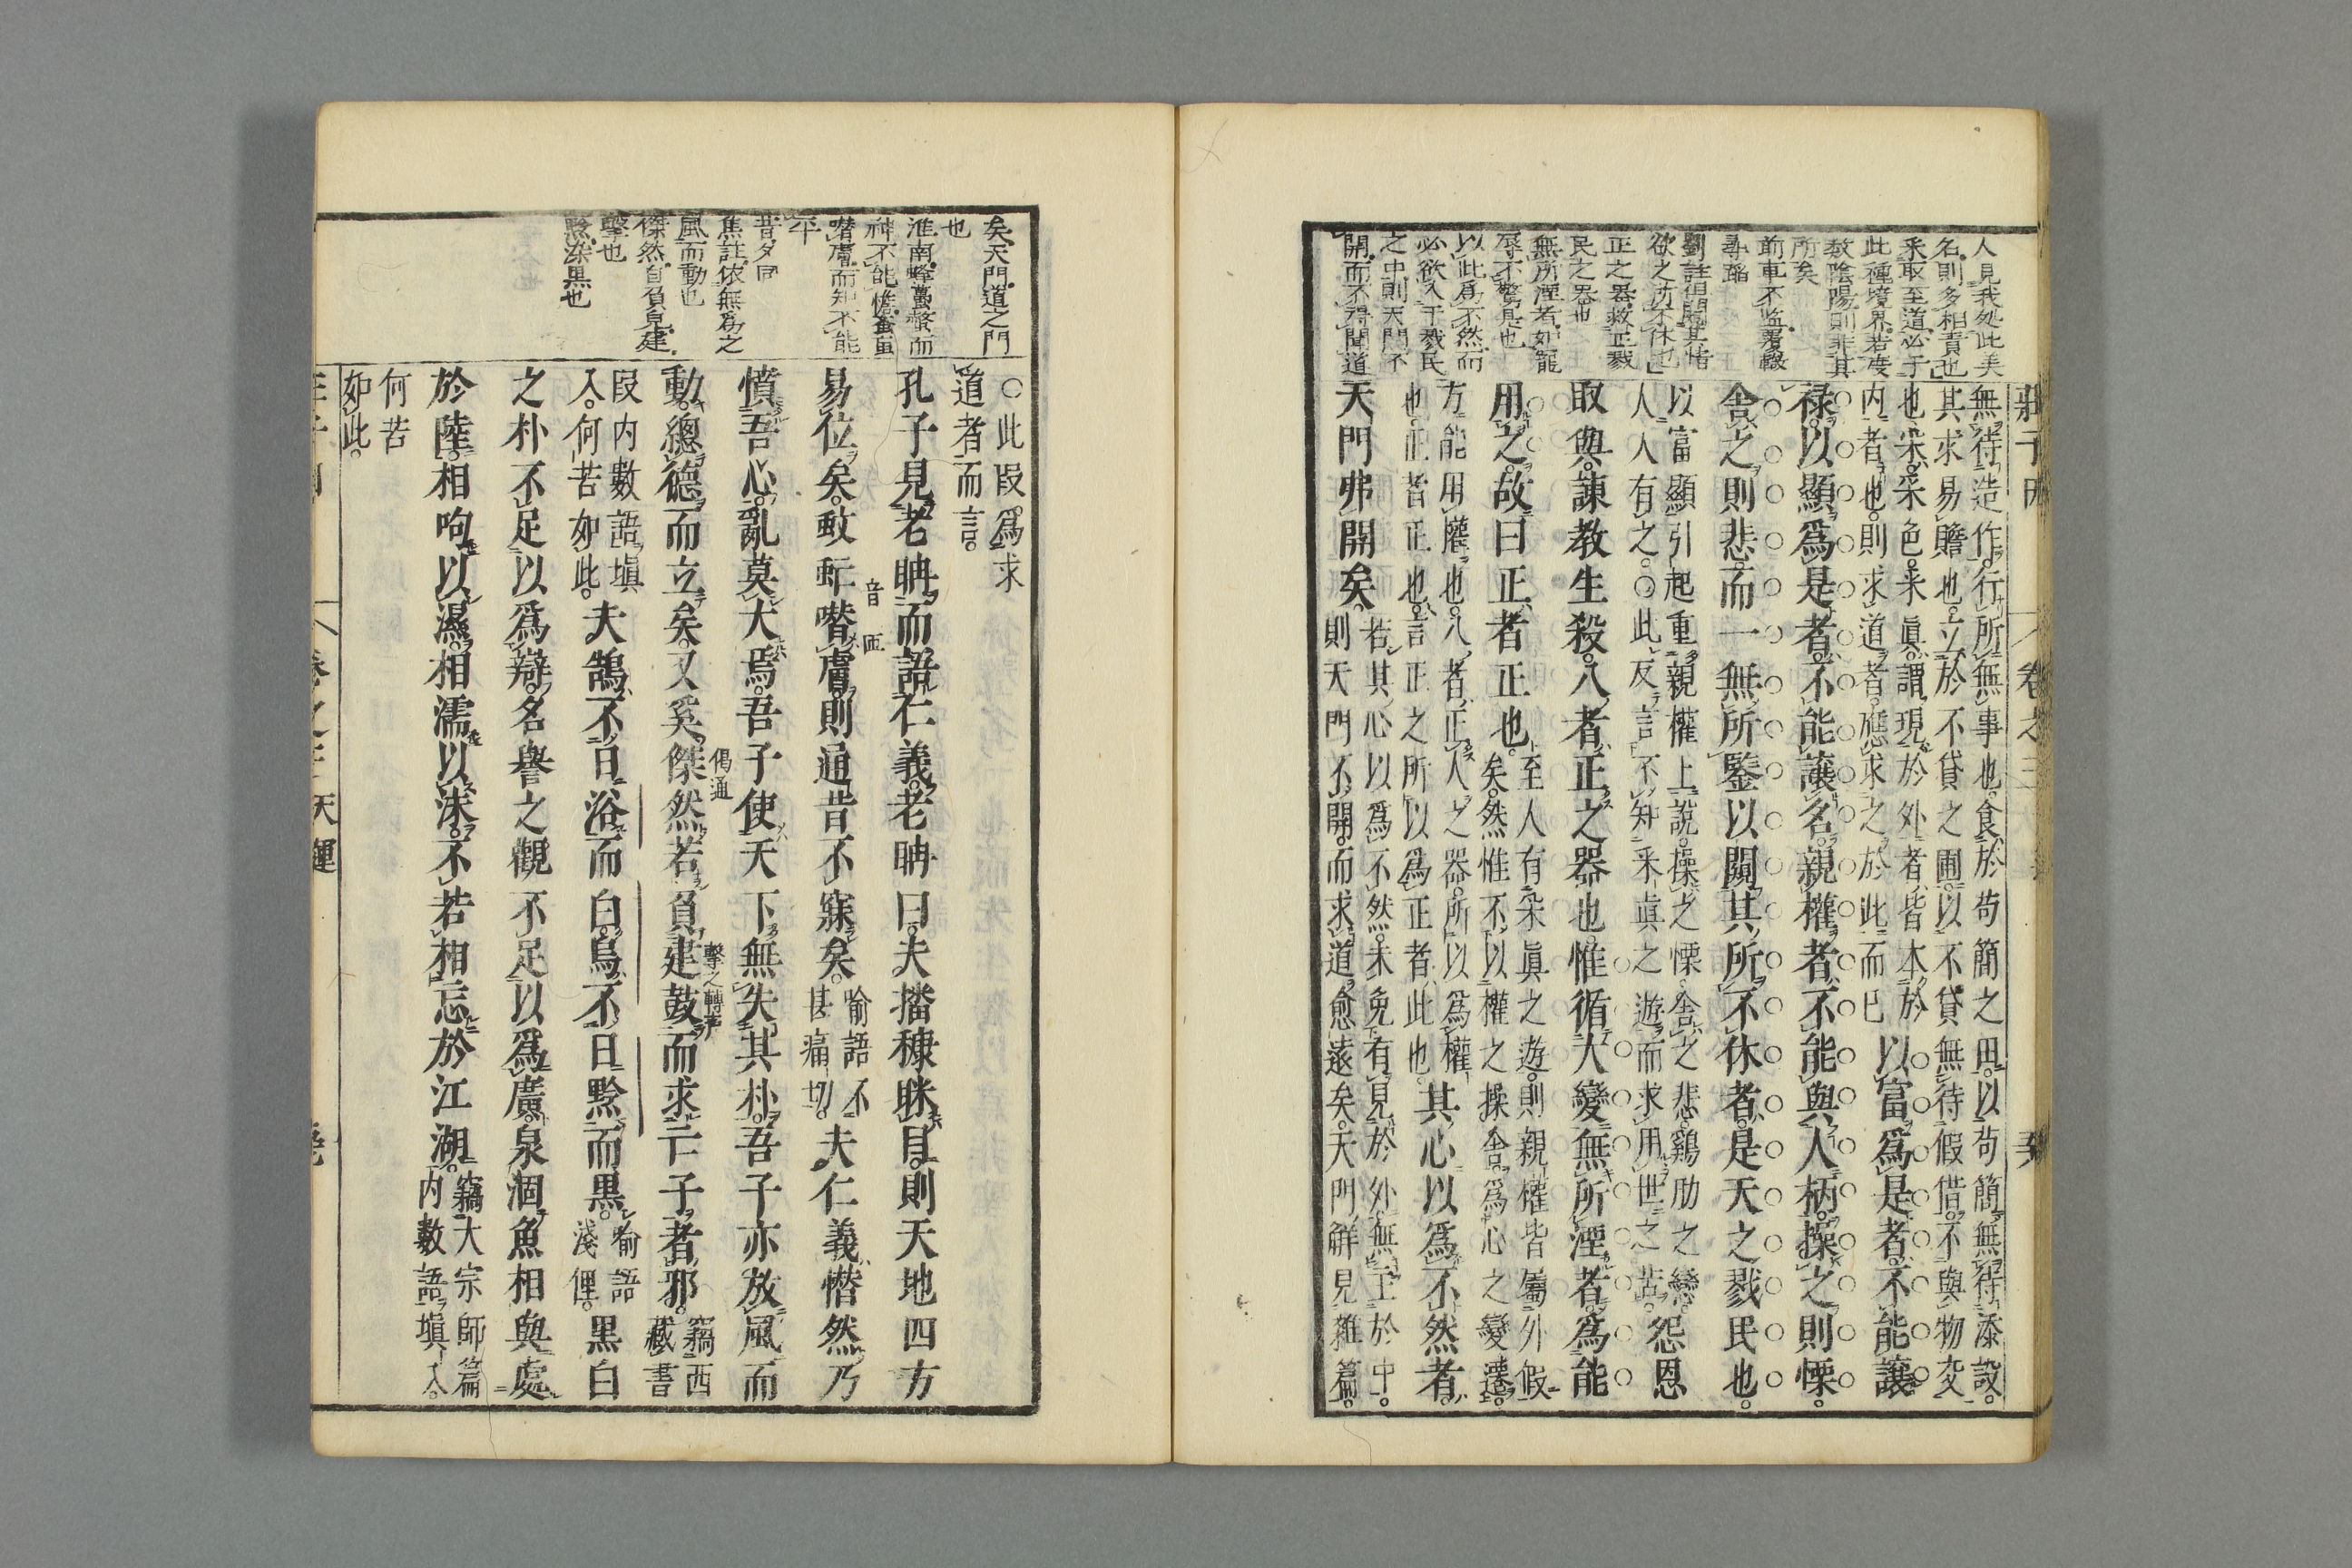 人見我処此美
名則多相責也
釆取至道必于
此種境界若凌
敖陰陽則非其
所矣
前車不监覆轍
尋蹈
劉註但闚其惜
欲之所不休也
正之器救正戮
民之器也
無所湮者如龍
辱不驚是也
以此爲不然而
必欲入于戮民
之中則天門不
開而不得聞道
莊子因
卷之三
無待造作行所無事也食於苟簡之田以苟簡無待添設
其求易贍也立於不貸之圃以不貸無待假借不與物交
也采釆色采眞謂現於外者皆本於
内者也則求道者應求之於此而已
以富爲是者不能讓
禄以顯爲是者不能讓名親權者不能與人柄操之則慄
舍之則悲而一無所鑒以闚其所不休者是天之戮民也
以富顯引起重親權上說操之慄舍之悲鷄肋之戀
人人有之〇此反言不知采眞之遊而求用世之苦
怨恩
取與諫教生殺八者正之器也惟循大變無所湮者爲能
用之故曰正者正也
至人有采眞之遊則親權皆屬外假
矣然惟不以權之操舍爲心之變遷
方能用權也八者正人之器所以爲權
也正者正也言正之所以爲正者此也
其心以爲不然者
天門弗開矣
若其心以爲不然未免有見於外無主於中
則天門不開而求道愈遠矣天門觧見雜篇
矣天門道之門
也
淮南蜂蠆螫而
神不能憺蚉䖟
噆膚而知不能
平
昔夕同
焦註依無爲之
風而動也
傑然自負皃建
擊也
黔染黒也
〇此叚爲求
道者而言
孔子見老聃而語仁義老聃曰夫播穅眯目則天地四方
易位矣蚊虻噆膚則通昔不寐矣
音匝
喻語不
甚痛切
夫仁義憯然乃
憤吾心亂莫大焉吾子使天下無失其朴吾子亦放風而
動總德而立矣又奚傑然若負建鼓而求亡子者邪
偈通
擊之轉聲
竊西
藏書
叚内數語塡
入何苦如此
夫鵠不日浴而白烏不日黔而黒
喻語
淺俚
黒白
之朴不足以爲辯名譽之觀不足以爲廣泉涸魚相與處
於陸相呴以濕相濡以沫不若相忘於江湖
竊大宗師篇
内數語塡入
何苦
如此
天運